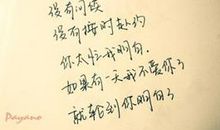 没有问候
没有按时赴约
你太忙我明白
如果有一天我不爱你了
就轮到你明白了
Payano